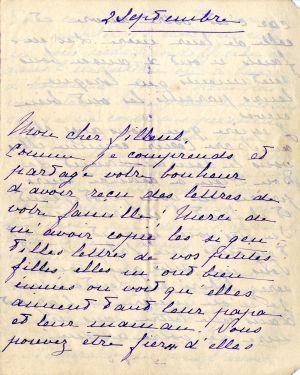 2 Septembre
Mon cher filleul,
Comme je comprends et
partage votre bonheur
d'avoir reçu des lettres de
votre famille! Merci de
m'avoir copié les si gen
tilles lettres de vos petites
filles, elles m'ont bien
émues on voit qu'elles
aiment tant leur papa
et leur maman. Vous
pouvez être fier d'elles